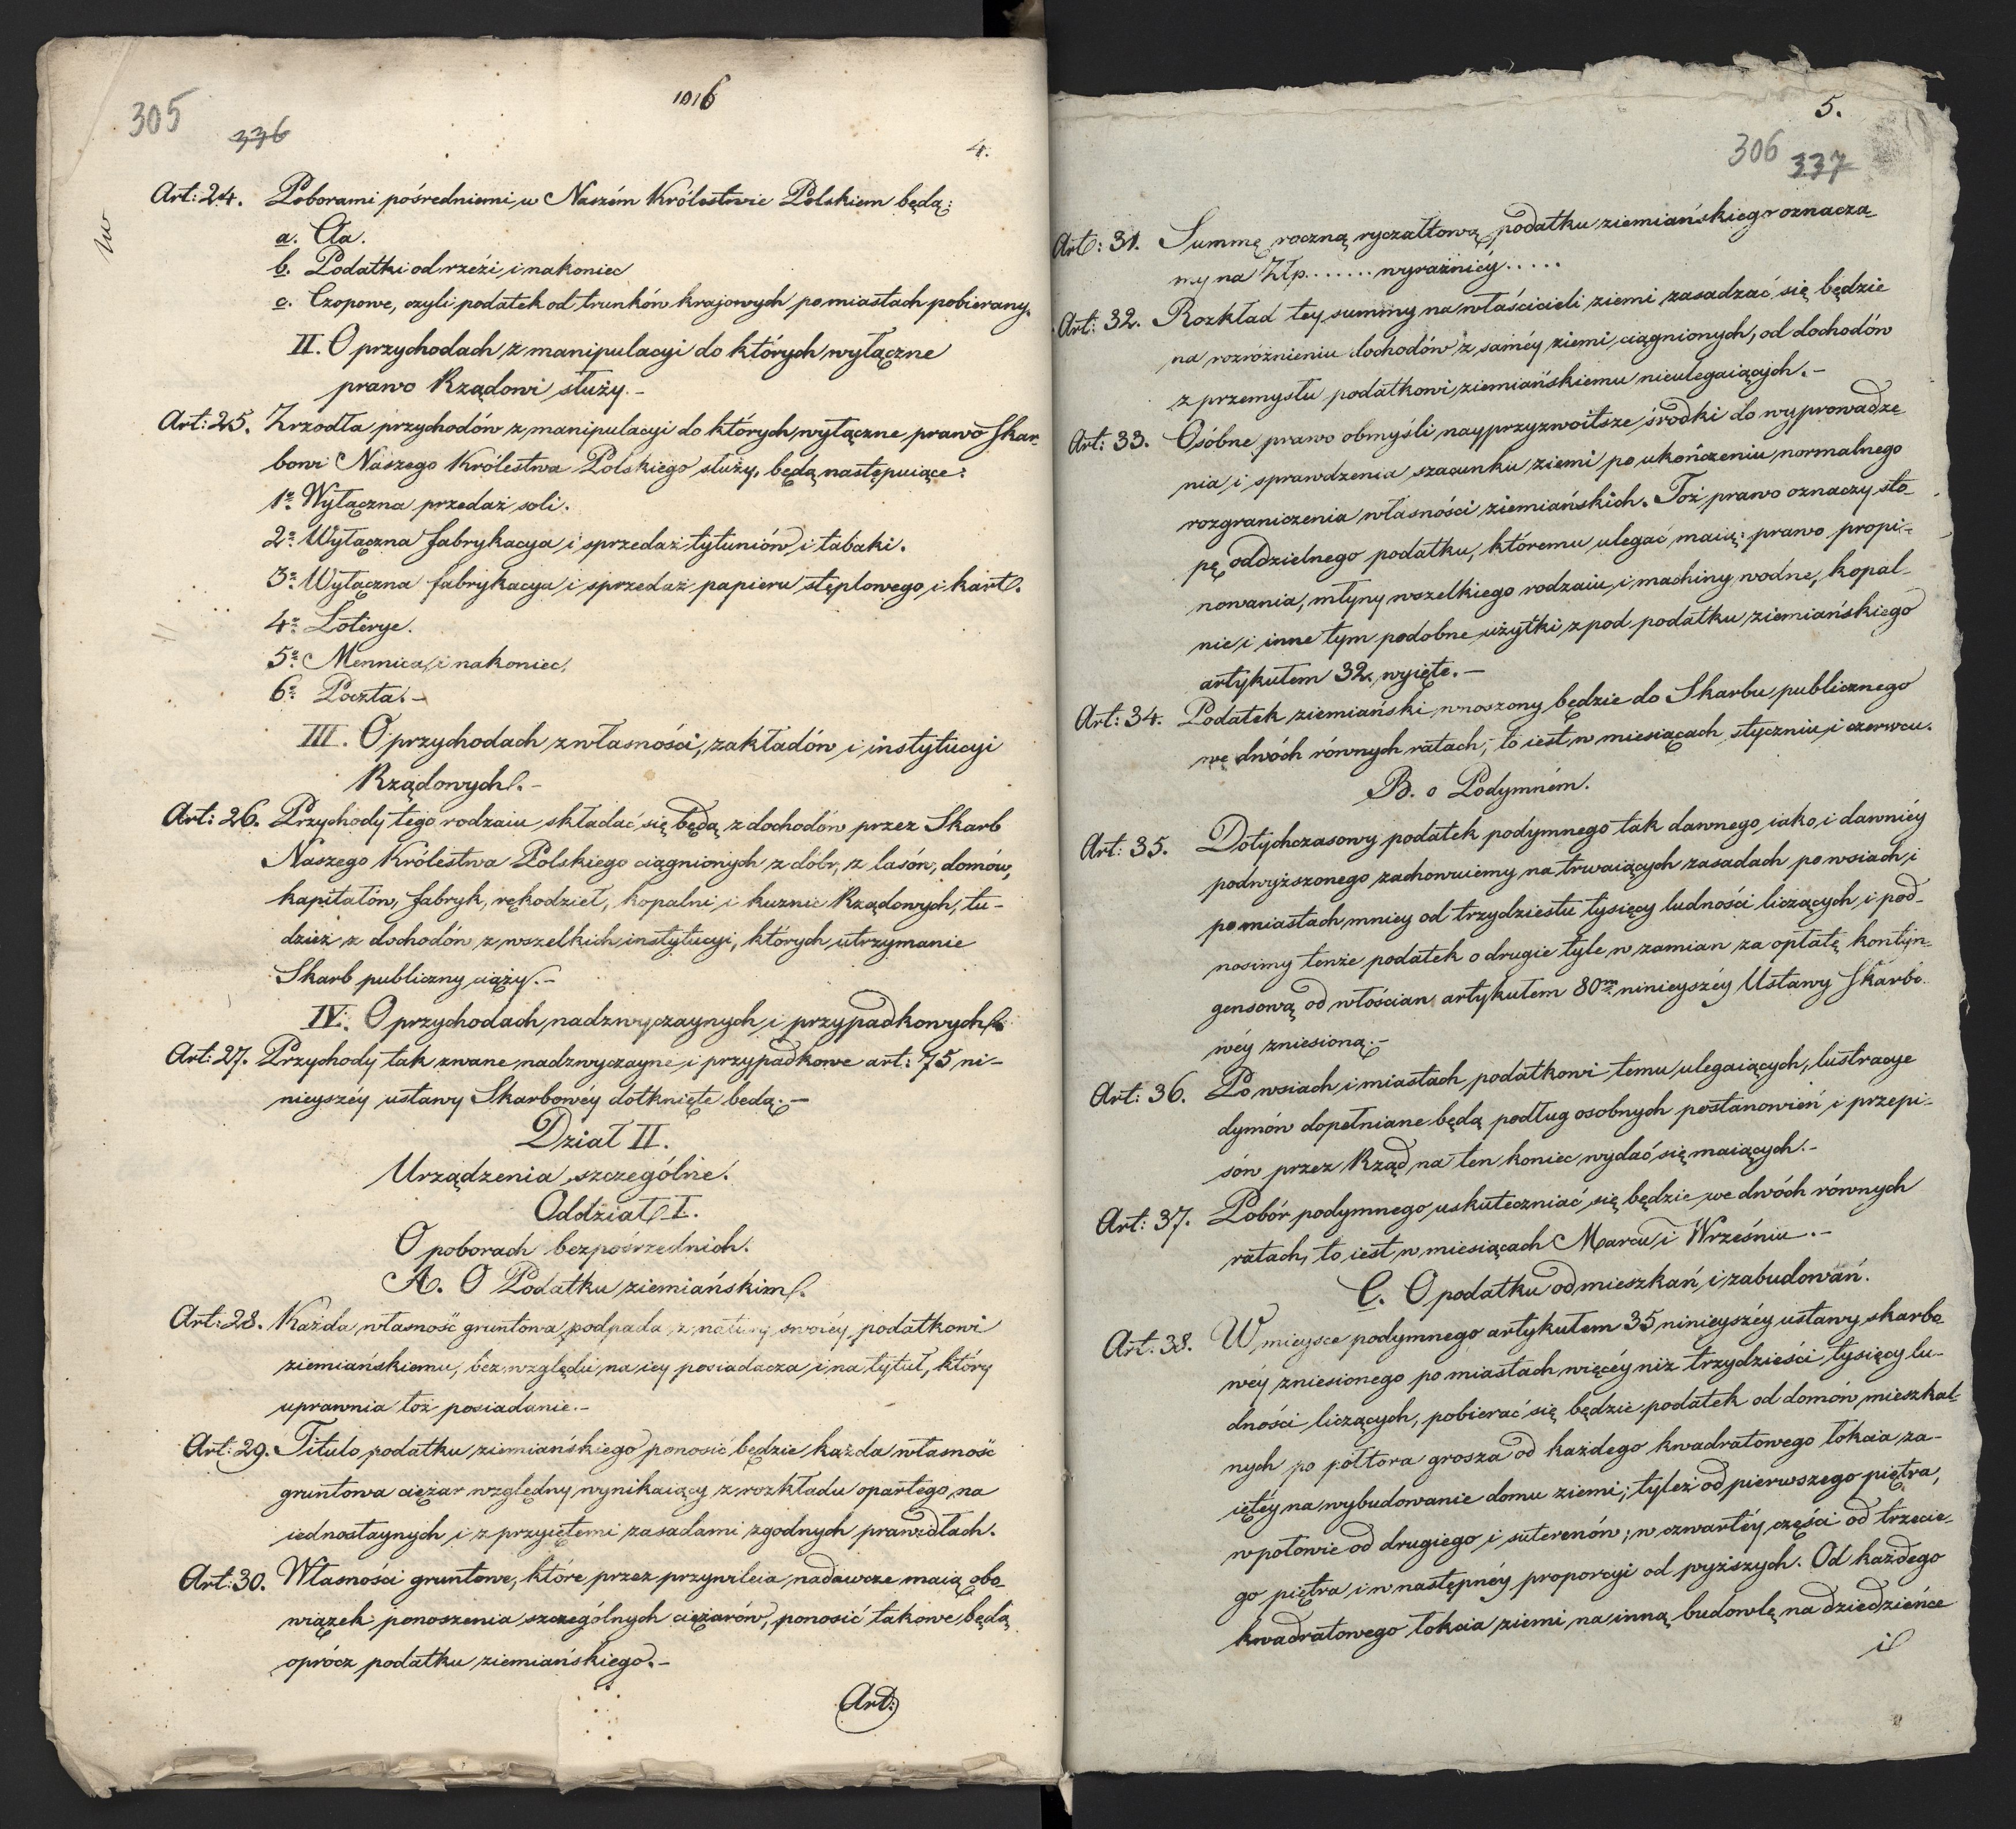 305
336
1016
4.
Art: 24. Poborami pośredniemi w Naszém Królestwie Polskiem będą:
a. Cła.
b. Podatki od rzézi i nakoniec
c. Czopowe, czyli podatek od trunków krajowych po miastach pobierany.
II. O przychodach z manipulacyi do których wyłączne
prawo Rządowi służy.-
Art: 25. Zrzodła przychodów z manipulacyi do których wyłączne prawo Skar-
bowi Naszego Królestwa Polskiego służy, będą następuiące:
1o Wyłączna przedaż soli.
2o Wyłączna fabrykacya i sprzedaż tytuniów i tabaki.
3o Wyłączna fabrykacya i sprzedaż papieru stęplowego i kart.
4o Loterye.
5o Mennica i nakoniec
6o Poczta.-
III. O przychodach z własności, zakładów i instytucyi
Rządowych.-
Art: 26. Przychody tego rodzaiu składać się będą z dochodów przez Skarb
Naszego Królestwa Polskiego ciągnionych z dóbr, z lasów, domów,
kapitałów, fabryk, rękodzieł, kopalni i kuznic Rządowych, tu-
dzież z dochodów z wszelkich instytucyi, których utrzymanie
Skarb publiczny ciąży.-
IV. O przychodach nadzwyczaynych i przypadkowych
Art: 27. Przychody tak zwane nadzwyczayne i przypadkowe art: 75 ni-
nieyszéy ustawy Skarbowéy dotknięte beda.-
Dział II.
Urządzenia szczególne.
Oddział I.
O poborach bezpośrzednich.
A. O Podatku ziemiańskim.
Art: 28. Każda własność gruntowa podpada z natury swoiéy podatkowi
ziemiańskiemu, bez względu na iey posiadacza i na tytuł, który
uprawnia toż posiadanie.-
Art: 29. Titulo podatku ziemiańskiego ponosić będzie każda własność
gruntowa ciężar względny wynikaiący z rozkładu opartego na
iednostaynych i z przyiętemi zasadami zgodnych prawidłach.
Art: 30. Własności gruntowe, które przez przywileia nadawcze maią obo-
wiązek ponoszenia szczególnych ciężarów, ponosić takowe będą
oprócz podatku ziemiańskiego.-
Art:
5.
306
337
Art: 31. Summę roczną ryczałtową podatku ziemiańskiego oznacza-
my na Złp....... wyraźniéy.....
Art: 32. Rozkład tey summy na właścicieli ziemi zasadzać się będzie
na rozróżnieniu dochodów z saméy ziemi ciągnionych, od dochodów
z przemysłu podatkowi ziemiańskiemu nieulegaiących.-
Art: 33. Osóbne prawo obmyśli nayprzyzwoitsze środki do wyprowadze-
nia i sprawdzenia szacunku ziemi po ukończeniu normalnego
rozgraniczenia własności ziemiańskich. Toż prawo oznaczy sto-
pę oddzielnego podatku, któremu ulegać maią: prawo propi-
nowania, młyny wszelkiego rodzaiu i machiny wodne, kopal-
nie i inne tym podobne użytki z pod podatku ziemiańskiego
artykułem 32. wyięte.-
Art: 34. Podatek ziemiański wnoszony będzie do Skarbu publicznego
we dwóch równych ratach, to iest w miesiącach styczniu i czerwcu.
B. o Podymném.
Art: 35. Dotychczasowy podatek podymnego tak dawnego iako i dawniéy
podwyższonego zachowuiemy na trwaiących zasadach po wsiach i
po miastach mniey od trzydziestu tysięcy ludności liczących i pod-
nosimy tenże podatek o drugie tyle w zamian za opłatę kontyn-
gensową od włościan artykułem 80m ninieyszéy Ustawy Skarbo-
wéy zniesioną.-
Art: 36. Po wsiach i miastach podatkowi temu ulegaiących, lustracye
dymów dopełniane będą podług osobnych postanowień i przepi-
sów przez Rząd na ten koniec wydać się maiących.-
Art: 37. Pobór podymnego uskuteczniać się będzie we dwóch równych
ratach, to iest w miesiącach Marcu i Wrześniu.-
C. O podatku od mieszkań i zabudowań.
Art: 38. W mieysce podymnego artykułem 35 ninieyszéy ustawy skarbo-
wéy zniesionego po miastach więcéy niż trzydzieści tysięcy lu-
dności liczących, pobierać się będzie podatek od domów mieszkal-
nych po półtora grosza od każdego kwadratowego łokcia za-
iętéy na wybudowanie domu ziemi; tyleż od pierwszego piętra,
w połowie od drugiego i suterenów; w czwartéy części od trzecie-
go piętra i w następnéy proporcyi od wyższych. Od każdego
kwadratowego łokcia ziemi na inną budowlę na dziedzińce
i